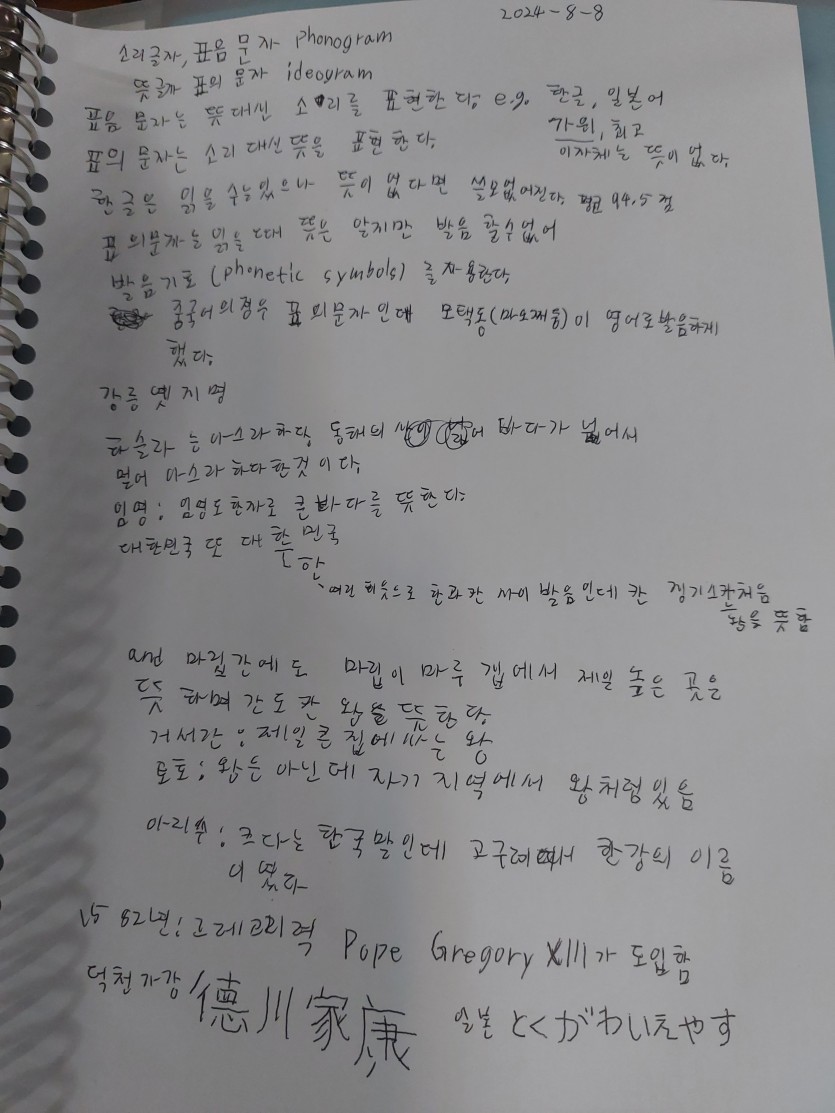 2024-8-8
소리글자, 표음 문자 phonogram
뜻글자 표의 문자 ideogram
표음 문자는 뜻 대신 소리를 표현한다. e.g. 한글, 일본어
가위, 최고
표의 문자는 소리 대신 뜻을 표현한다.
이 자체는 뜻이 없다.
한글은 읽을 수는 있으나 뜻이 없다면 쓸모없어진다. 평균 94.5점
표의문자는 읽을 때 뜻은 알지만 발음 할수없어
발음기호 (phonetic symbols) 를 사용한다.
중국어의 경우 표의문자인데 모택동(마오쩌둥)이 영어로 발음하게
했다.
강릉 옛지명
하슬라 는 아스라하다, 동해의 바다가 넓어서
멀어 아스라하다한것이다.
임영 : 임영도 한자로 큰 바다를 뜻한다.
대한민국 또 대 한 민국
한
여린 히읗으로 한과 칸 사이 발음인데 칸 징기스칸처럼
는
왕을 뜻함
and 마립간에도 마립이 마루 개에서 제일 높은 곳을
뜻하며 간도 칸 왕을 뜻한다.
거서간 : 제일 큰 집에 사는 왕
토호 : 왕은 아닌데 자기 지역에서 왕처럼있음
아리수 : 크다는 한국말인데 고구려에서 한강의 이름
이였다
1582년 : 그레고리력 Pope Gregory XIII가 도입함
덕천가강 德川家康 일본 とくがわいえやす